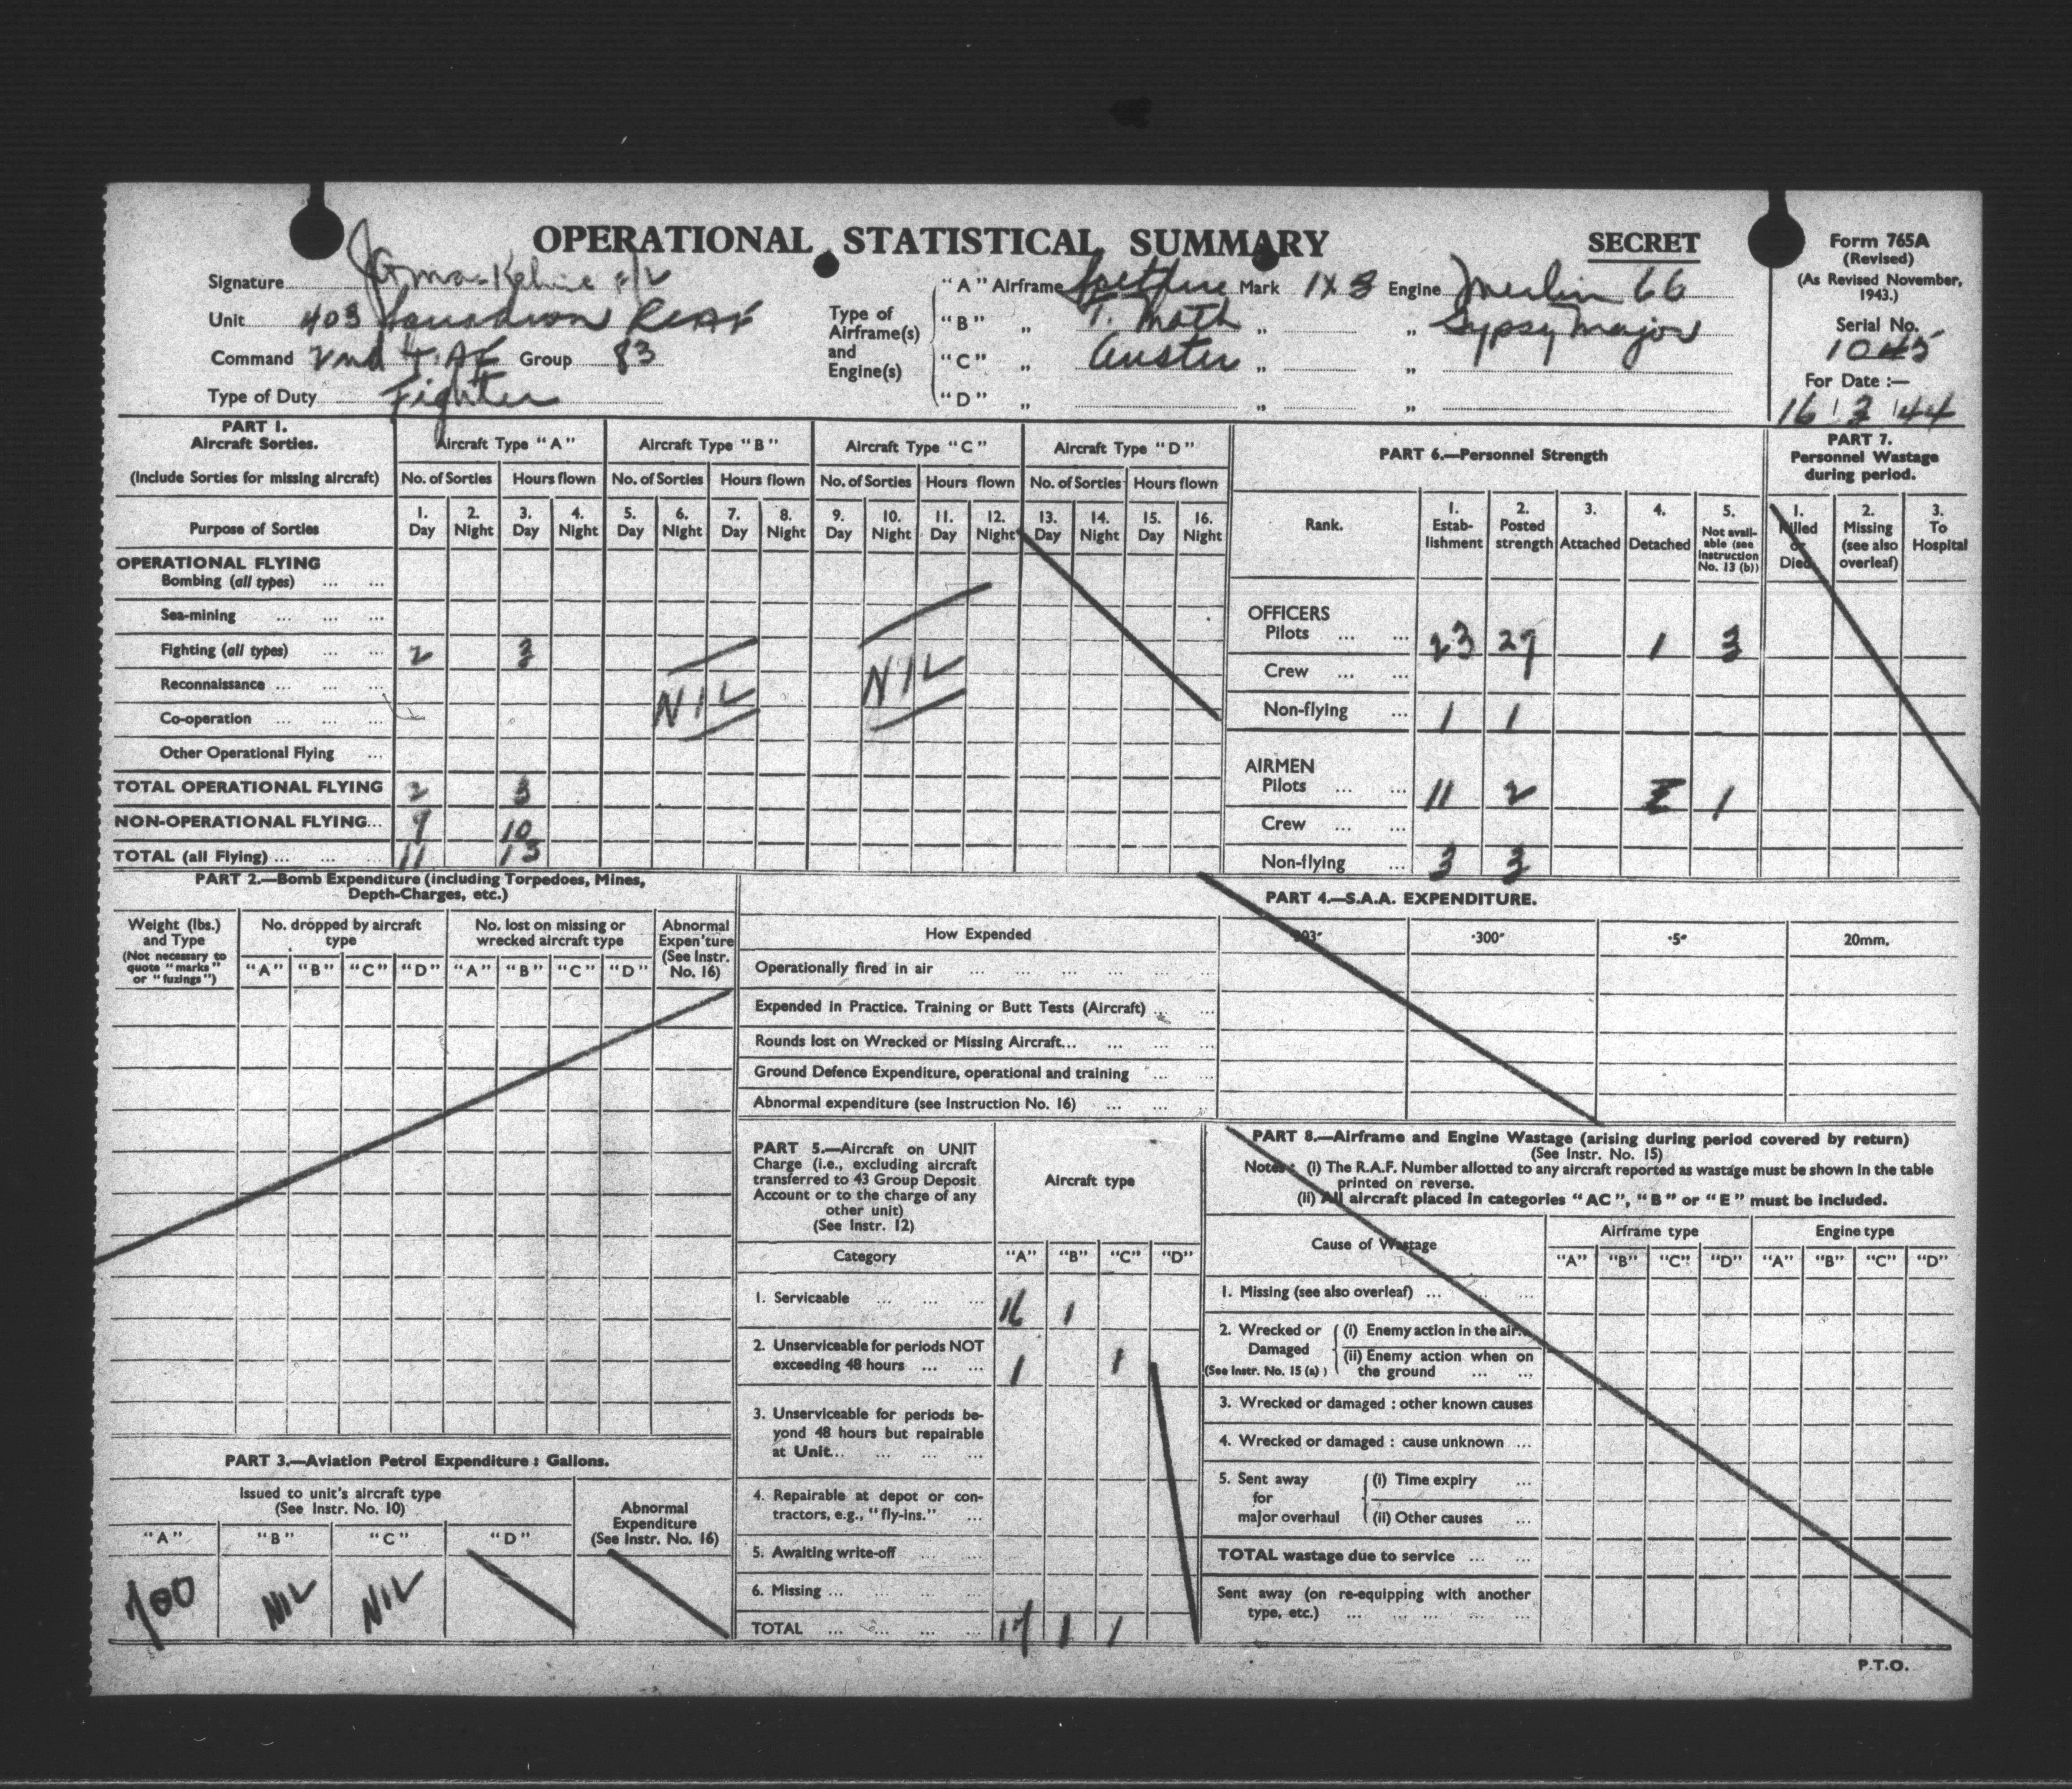 OPERATIONAL STATISTICAL SUMMARY
SECRET
Form 765A
(Revised)
(As Revised November,
1943.)
Serial No.
1045
For Date :—
16 3 44
Signature
Unit 403 Squadron RCAF
Command 2nd T.A.F. Group 83
Type of Duty Fighter
Type of
Airframe(s)
and
Engine(s)
"A" Airframe Spitfire Mark IX B Engine Merlin 66
"B" „ T. Moth „ „ Gypsy Major
"C" „ Auster „ „
"D" „ „ „
PART 1.
Aircraft Sorties.
(Include Sorties for missing aircraft)
Purpose of Sorties
Aircraft Type "A" Aircraft Type "B" Aircraft Type "C" Aircraft Type "D"
No. of Sorties Hours flown No. of Sorties Hours flown No. of Sorties Hours flown No. of Sorties Hours flown
1. 2. 3. 4. 5. 6. 7. 8. 9. 10. 11. 12. 13. 14. 15. 16.
Day Night Day Night Day Night Day Night Day Night Day Night Day Night Day Night
OPERATIONAL FLYING
Bombing (all types) ... ...
Sea-mining ... ... ...
Fighting (all types) ... ... 2 3
Reconnaissance ... ... ...
NIL NIL
Co-operation ... ... ...
Other Operational Flying ...
TOTAL OPERATIONAL FLYING 2 3
NON-OPERATIONAL FLYING... 9 10
TOTAL (all Flying) ... ... ... 11 13
PART 6.—Personnel Strength
Rank.
1. Estab-
lishment
2. Posted
strength
3. Attached
4. Detached
5. Not avail-
able (see
Instruction
No. 13 (b))
OFFICERS
Pilots ... ... 23 27 1 3
Crew ... ...
Non-flying ... 1 1
AIRMEN
Pilots ... ... 11 2 1
Crew ... ...
Non-flying ... 3 3
PART 7.
Personnel Wastage
during period.
1. Killed
or
Died
2. Missing
(see also
overleaf)
3. To
Hospital
PART 2.—Bomb Expenditure (including Torpedoes, Mines,
Depth-Charges, etc.)
Weight (lbs.)
and Type
(Not necessary to
quote "marks"
or "fuzings")
No. dropped by aircraft
type
No. lost on missing or
wrecked aircraft type
Abnormal
Expen'ture
(See Instr.
No. 16)
"A" "B" "C" "D" "A" "B" "C" "D"
PART 4.—S.A.A. EXPENDITURE.
How Expended ·303" ·300" ·5" 20mm.
Operationally fired in air ... ... ... ... ... ...
Expended in Practice. Training or Butt Tests (Aircraft) ... ...
Rounds lost on Wrecked or Missing Aircraft... ... ... ...
Ground Defence Expenditure, operational and training ... ...
Abnormal expenditure (see Instruction No. 16) ... ... ...
PART 3.—Aviation Petrol Expenditure : Gallons.
Issued to unit's aircraft type
(See Instr. No. 10)
Abnormal
Expenditure
(See Instr. No. 16)
"A" "B" "C" "D"
700 NIL NIL
PART 5.—Aircraft on UNIT
Charge (i.e., excluding aircraft
transferred to 43 Group Deposit
Account or to the charge of any
other unit)
(See Instr. 12)
Aircraft type
Category "A" "B" "C" "D"
1. Serviceable ... ... ... 16 1
2. Unserviceable for periods NOT
exceeding 48 hours ... ... 1 1
3. Unserviceable for periods be-
yond 48 hours but repairable
at Unit... ... ... ...
4. Repairable at depot or con-
tractors, e.g., "fly-ins." ...
5. Awaiting write-off ... ...
6. Missing ... ... ... ...
TOTAL ... ... ... ... 17 1 1
PART 8.—Airframe and Engine Wastage (arising during period covered by return)
(See Instr. No. 15)
Notes : (i) The R.A.F. Number allotted to any aircraft reported as wastage must be shown in the table
printed on reverse.
(ii) All aircraft placed in categories "AC", "B" or "E" must be included.
Cause of Wastage
Airframe type Engine type
"A" "B" "C" "D" "A" "B" "C" "D"
1. Missing (see also overleaf) ... ... ...
2. Wrecked or
Damaged
(See Instr. No. 15 (a) )
(i) Enemy action in the air...
(ii) Enemy action when on
the ground ... ...
3. Wrecked or damaged : other known causes
4. Wrecked or damaged : cause unknown ...
5. Sent away
for
major overhaul
(i) Time expiry ...
(ii) Other causes ...
TOTAL wastage due to service ... ...
Sent away (on re-equipping with another
type, etc.) ... ... ... ... ...
P.T.O.